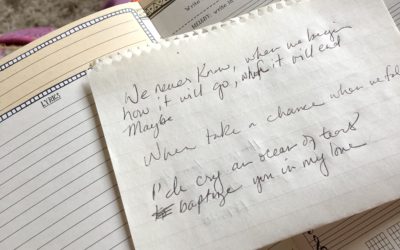 LYRICS
We never know, when we begin
how it will go, when it will end
Maybe
When take a chance when we
I'd cry an ocean of tears
baptize you in my love